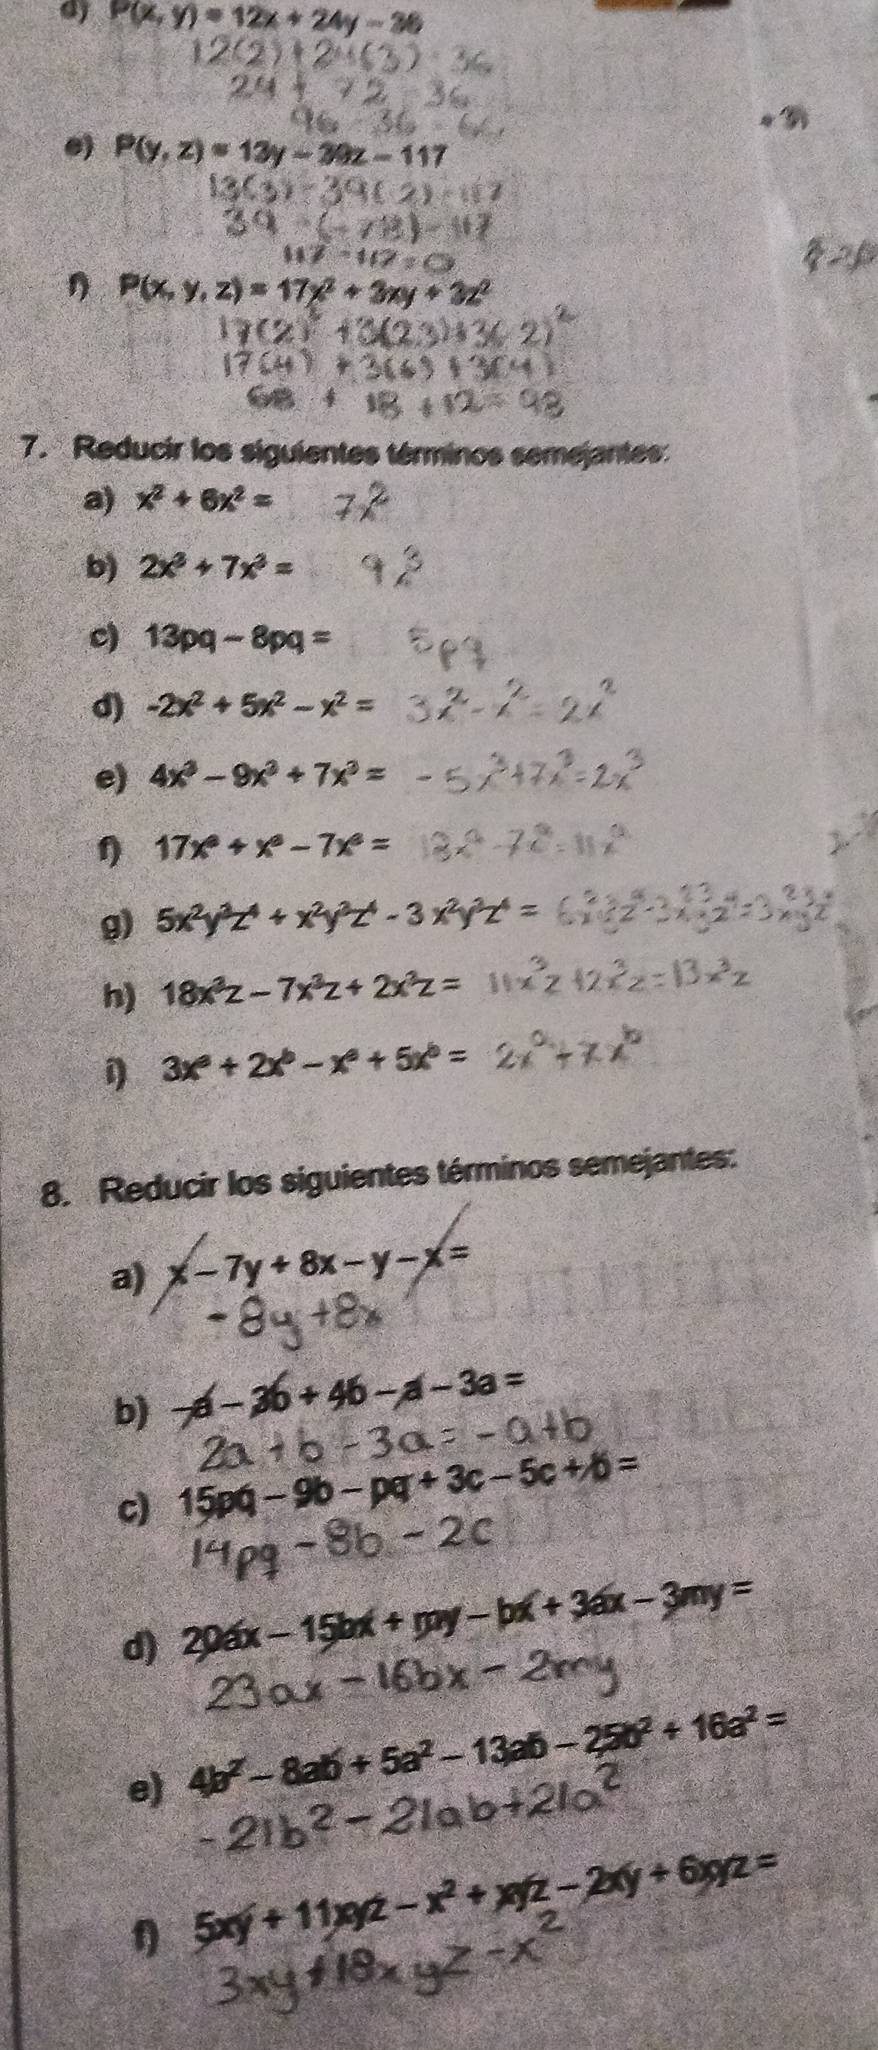 d) P(x, y) = 12x + 24y - 36
12(2) + 24(3) - 36
24 + 72 - 36
96 - 36 = 60
e) P(y, z) = 13y - 39z - 117
13(3) - 39(-2) - 117
39 - (-78) - 117
117 - 117 = 0
f) P(x, y, z) = 17x² + 3xy + 3z²
17(2)² + 3(2.3) + 3(-2)²
17(4) + 3(6) + 3(4)
68 + 18 + 12 = 98
7. Reducir los siguientes términos semejantes:
a) x² + 6x² = 7x²
b) 2x³ + 7x³ = 9x³
c) 13pq - 8pq = 5pq
d) -2x² + 5x² - x² = 3x² - x² = 2x²
e) 4x³ - 9x³ + 7x³ = -5x³ + 7x³ = 2x³
f) 17xᵃ + xᵃ - 7xᵃ = 18xᵃ - 7xᵃ = 11xᵃ
g) 5x²y³z⁴ + x²y³z⁴ - 3x²y³z⁴ = 6x²y³z⁴ - 3x²y³z⁴ = 3x²y³z⁴
h) 18x³z - 7x³z + 2x³z = 11x³z + 2x³z = 13x³z
i) 3xᵃ + 2xᵇ - xᵃ + 5xᵇ = 2xᵃ + 7xᵇ
8. Reducir los siguientes términos semejantes:
a) x - 7y + 8x - y - x =
-8y + 8x
b) -a - 3b + 4b - a - 3a =
2a + b - 3a = -a + b
c) 15pq - 9b - pq + 3c - 5c + b =
14pq - 8b - 2c
d) 20ax - 15bx + my - bx + 3ax - 3my =
23ax - 16bx - 2my
e) 4b² - 8ab + 5a² - 13ab - 25b² + 16a² =
-21b² - 21ab + 21a²
f) 5xy + 11xyz - x² + xyz - 2xy + 6xyz =
3xy + 18xyz - x²